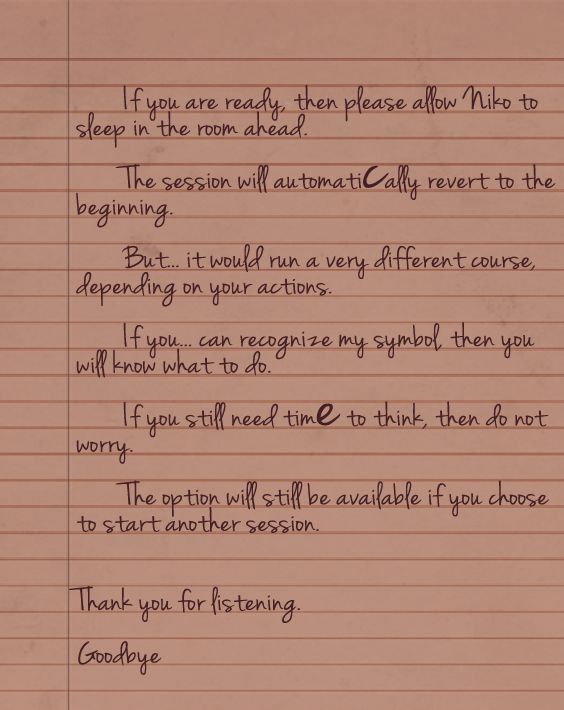 If you are ready, then please allow Niko to
sleep in the room ahead.
The session will automatiCally revert to the
beginning.
But... it would run a very different course,
depending on your actions.
If you... can recognize my symbol, then you
will know what to do.
If you still need time to think, then do not
worry.
The option will still be available if you choose
to start another session.
Thank you for listening.
Goodbye